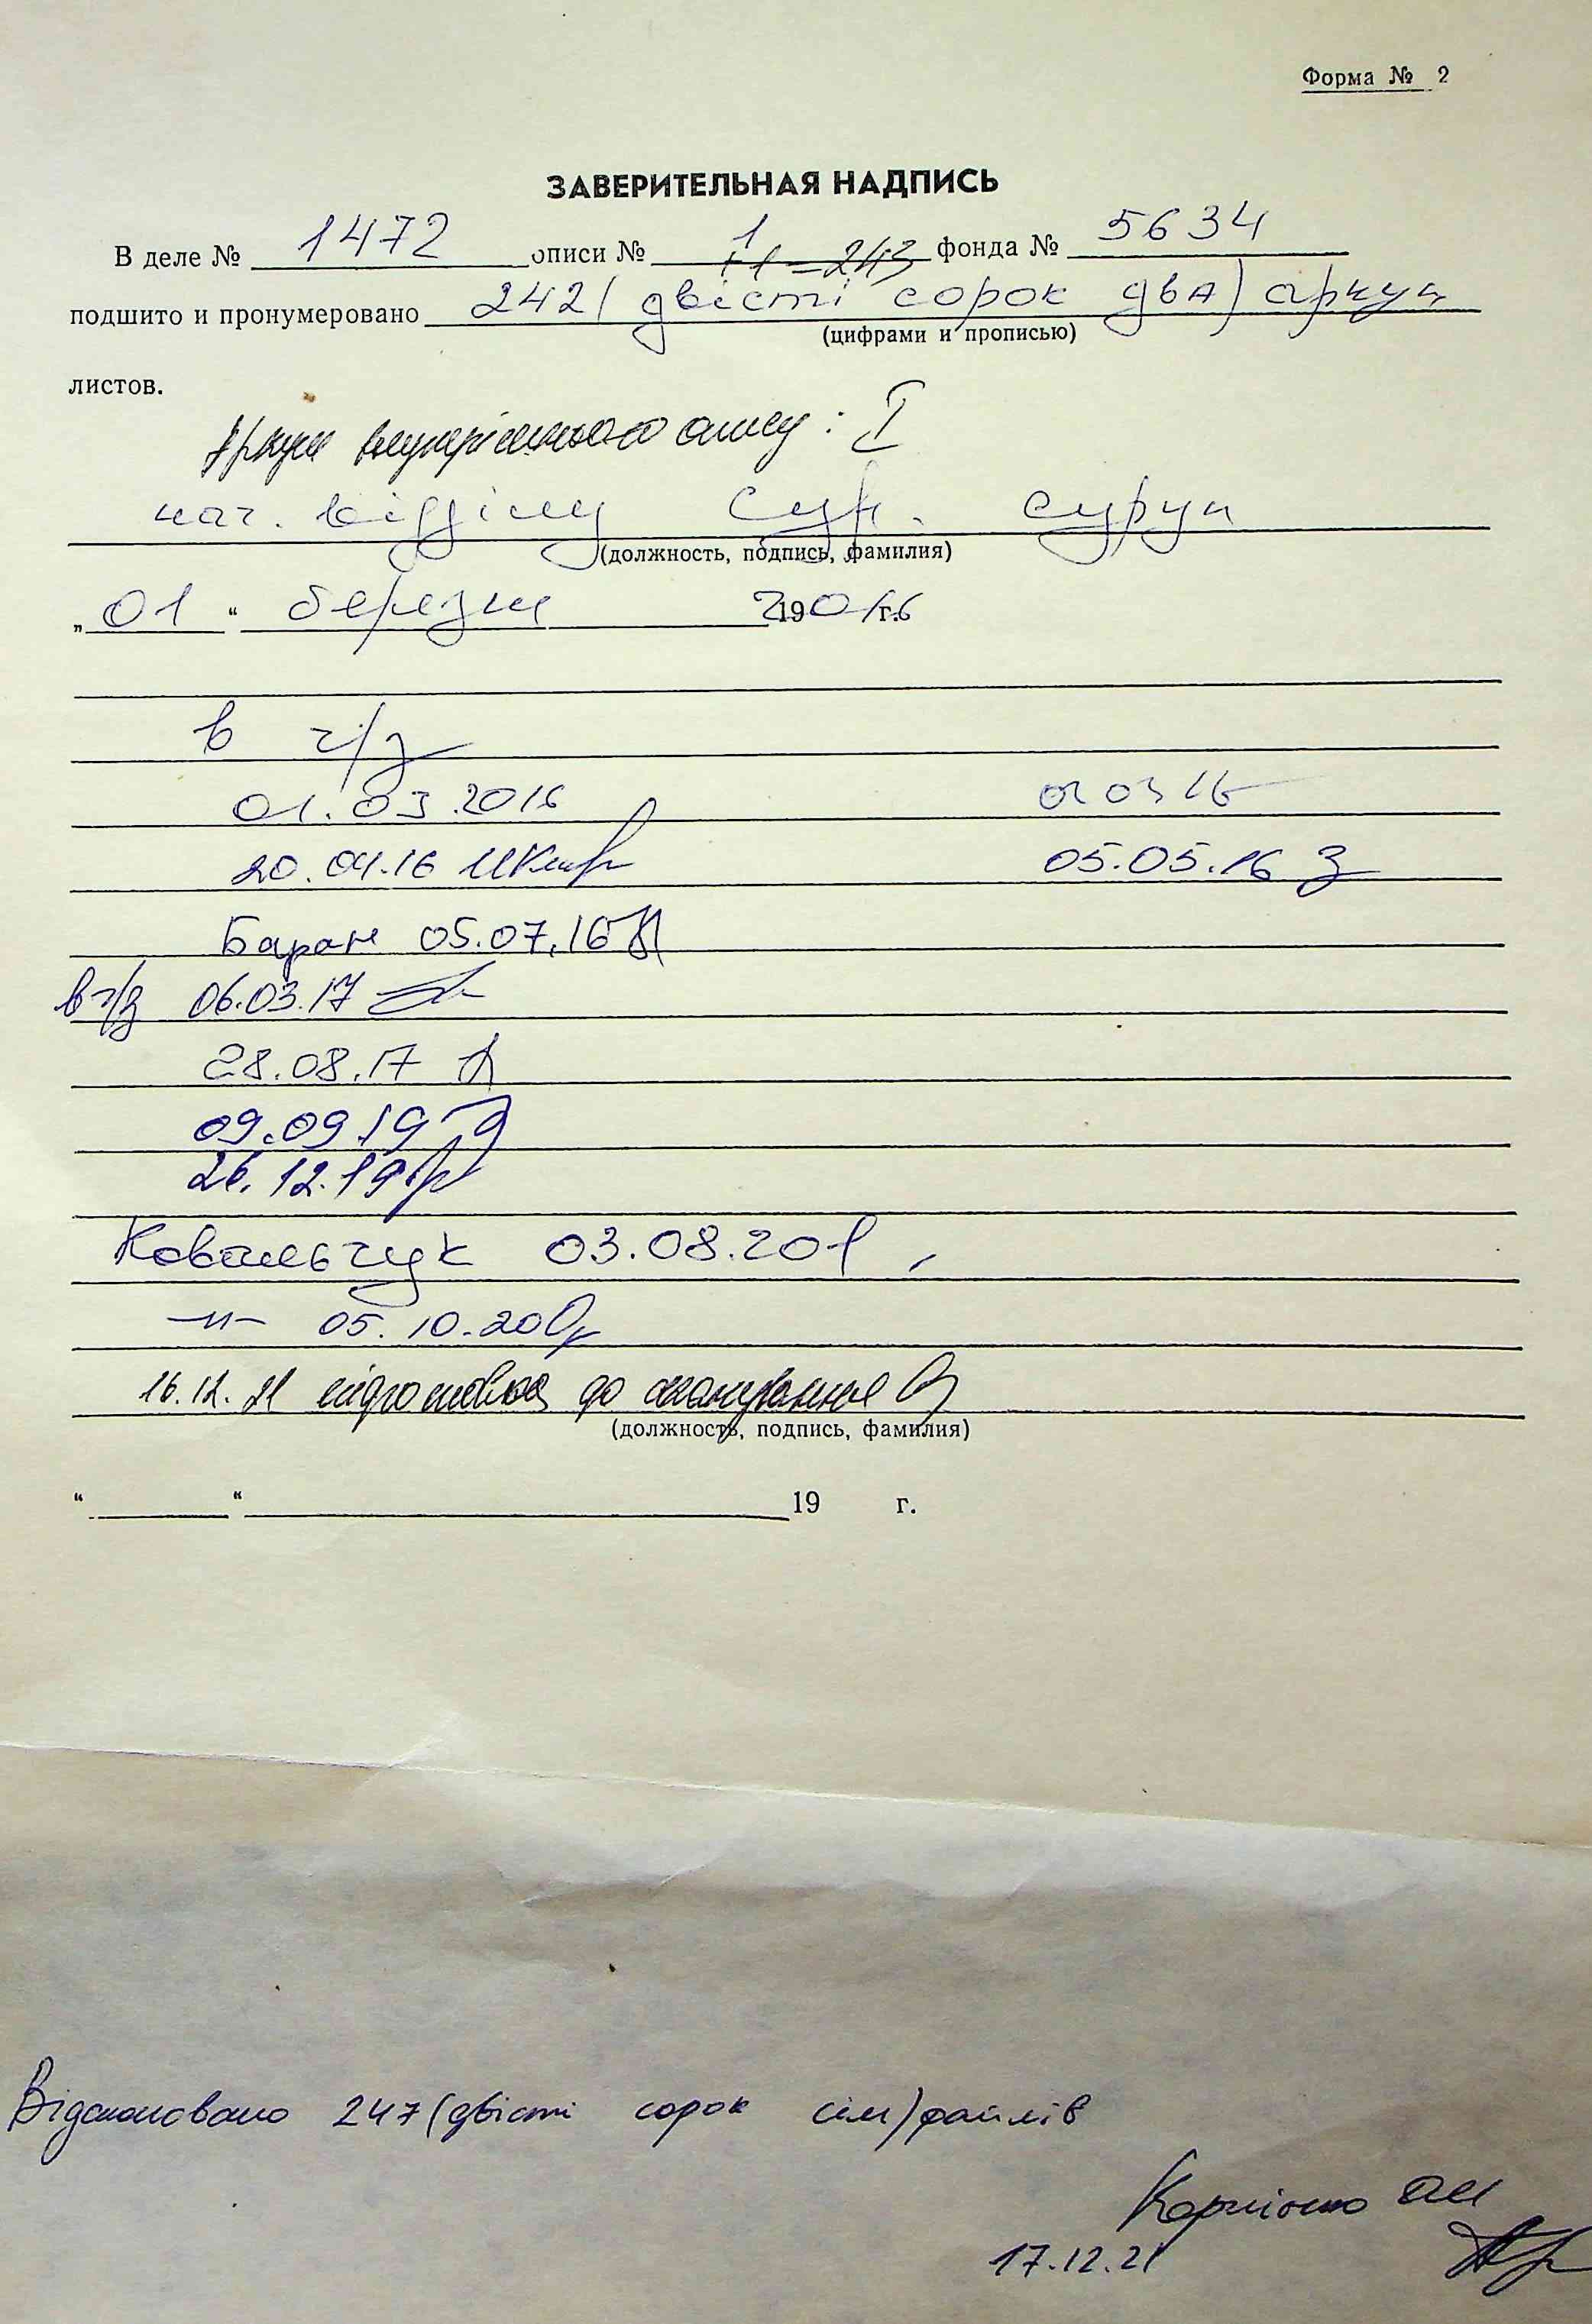 Форма № 2
ЗАВЕРИТЕЛЬНАЯ НАДПИСЬ
В деле № 1472 описи № 1 фонда № 5634
+1=243
подшито и пронумеровано 242 (двісті сорок два) аркуш
(цифрами и прописью)
листов.
Аркуш внутрішнього опису: I
нач. відділу
(должность, подпись, фамилия)
„01“ березня 2016 г.
в ч/з
01.03.2016
20.04.16 05.05.16
Баран 05.07.16
в ч/з 06.03.17
28.08.17
09.09.19
26.12.19
Ковальчук 03.08.20
—"— 05.10.20
16.12.21 підготовка до сканування
(должность, подпись, фамилия)
“ “ 19 г.
Відскановано 247 (двісті сорок сім) файлів
17.12.21